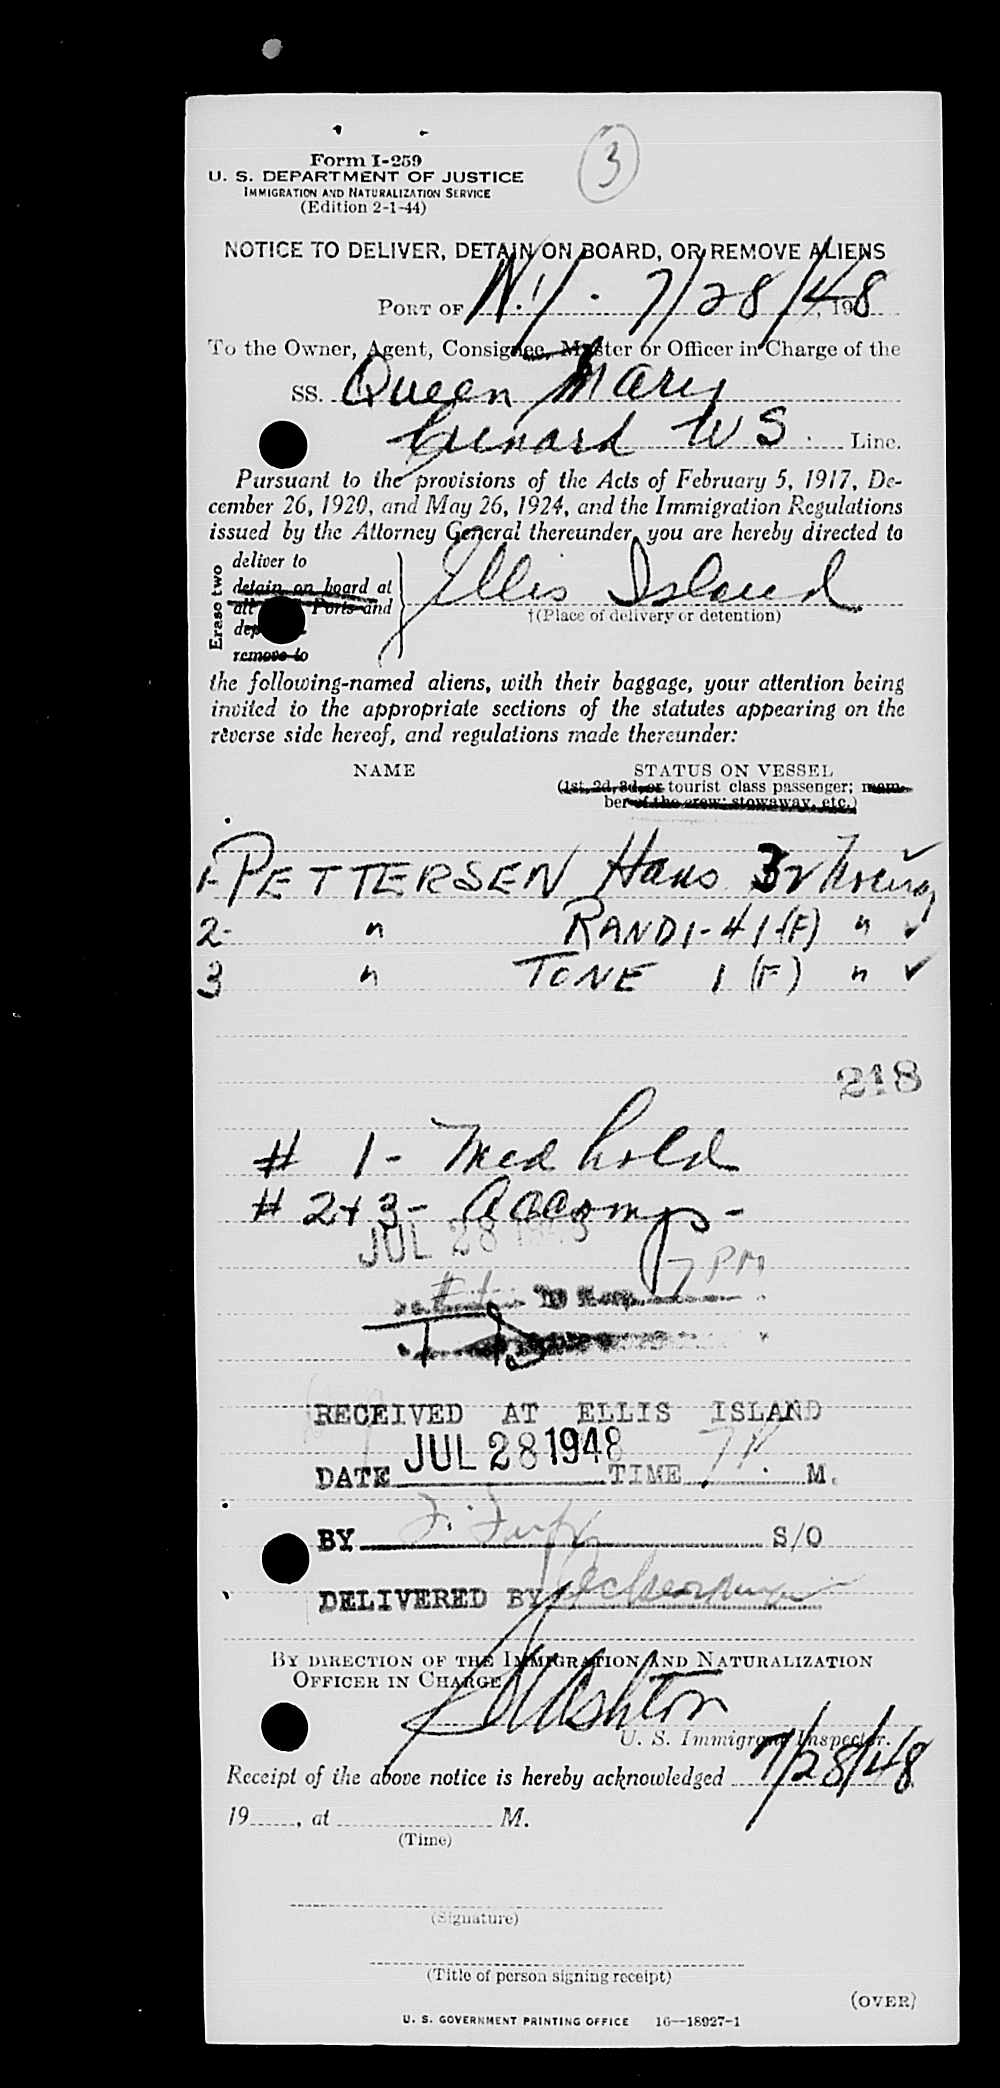 3
Form I-259
U. S. DEPARTMENT OF JUSTICE
IMMIGRATION AND NATURALIZATION SERVICE
(Edition 2-1-44)
NOTICE TO DELIVER, DETAIN ON BOARD, OR REMOVE ALIENS
PORT OF N.Y. 7/28/48, 19
To the Owner, Agent, Consignee, Master or Officer in Charge of the
SS. Queen Mary
Cunard W S. Line.
Pursuant to the provisions of the Acts of February 5, 1917, De-
cember 26, 1920, and May 26, 1924, and the Immigration Regulations
issued by the Attorney General thereunder, you are hereby directed to
Erase two
deliver to
detain on board at
all Ports and
remove to
Ellis Island
†(Place of delivery or detention)
the following-named aliens, with their baggage, your attention being
invited to the appropriate sections of the statutes appearing on the
reverse side hereof, and regulations made thereunder:
NAME STATUS ON VESSEL
(1st, 2d, 3d, or tourist class passenger; mem-
ber of the crew; stowaway, etc.)
1- PETTERSEN Hans 32 ✓
2- " RANDI - 41 (F) " ✓
3 " TONE 1 (F) " ✓
218
# 1 - Med hold
# 2 + 3 - Accomp -
JUL 28 1948
7 PM
RECEIVED AT ELLIS ISLAND
DATE JUL 28 1948 TIME 7 P. M.
BY S/O
DELIVERED BY
BY DIRECTION OF THE IMMIGRATION AND NATURALIZATION
OFFICER IN CHARGE
Ashton
U. S. Immigrant Inspector.
Receipt of the above notice is hereby acknowledged 7/28/48
19, at M.
(Time)
(Signature)
(Title of person signing receipt)
(OVER)
U. S. GOVERNMENT PRINTING OFFICE 16—18927-1